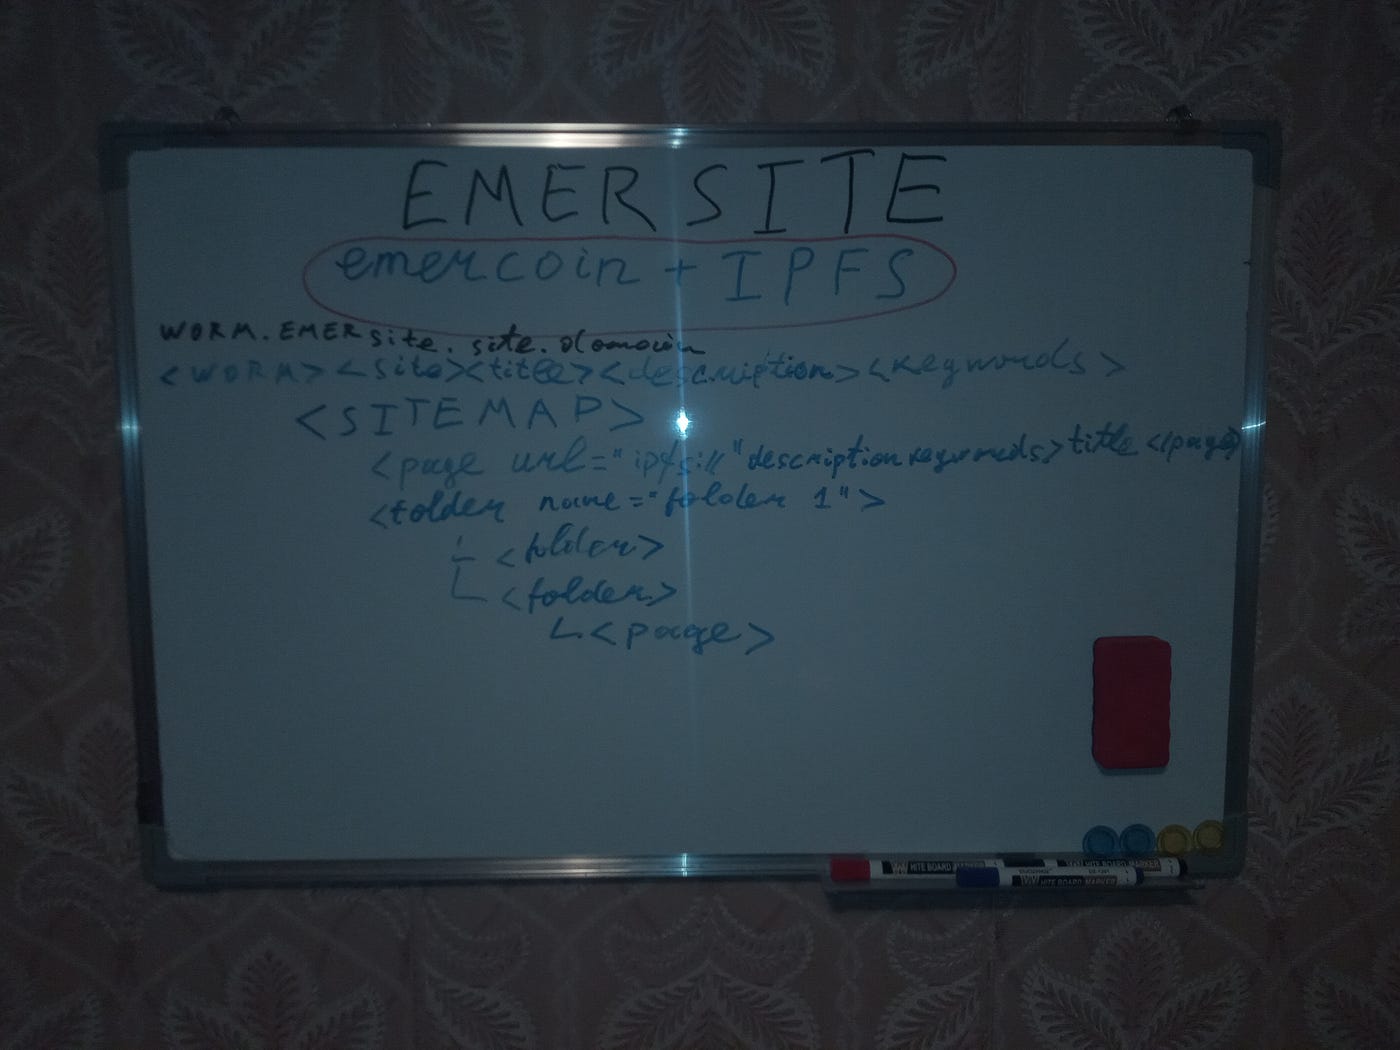 EMER SITE
emercoin + IPFS
WORM.EMERsite.site.domain
<WORM><site><title><description><keywords>
<SITEMAP>
<page url="ipfs://" description keywords>title</page>
<folder name="folder 1">
<folder>
<folder>
<page>
WHITE BOARD MARKER
WHITE BOARD MARKER
WHITE BOARD MARKER